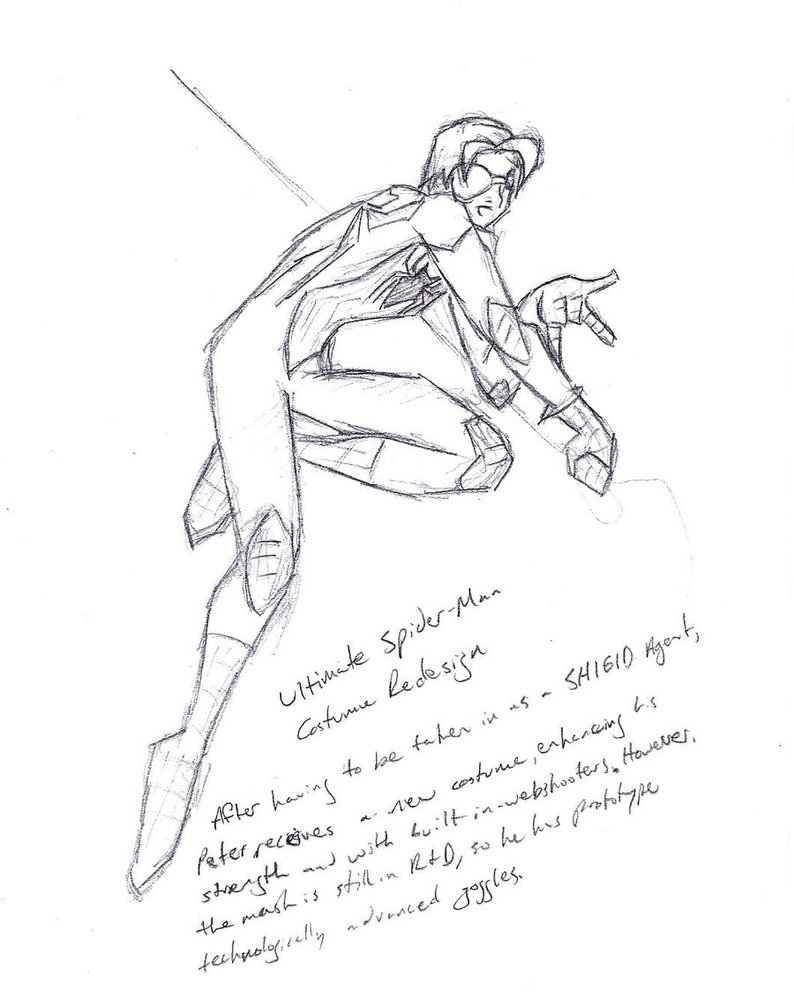 Ultimate Spider-Man
Costume Redesign
After having to be taken in as a SHIELD Agent,
Peter receives a new costume, enhancing his
strength and with built in-webshooters. However,
the mask is still in R+D, so he has prototype
technologically advanced goggles.